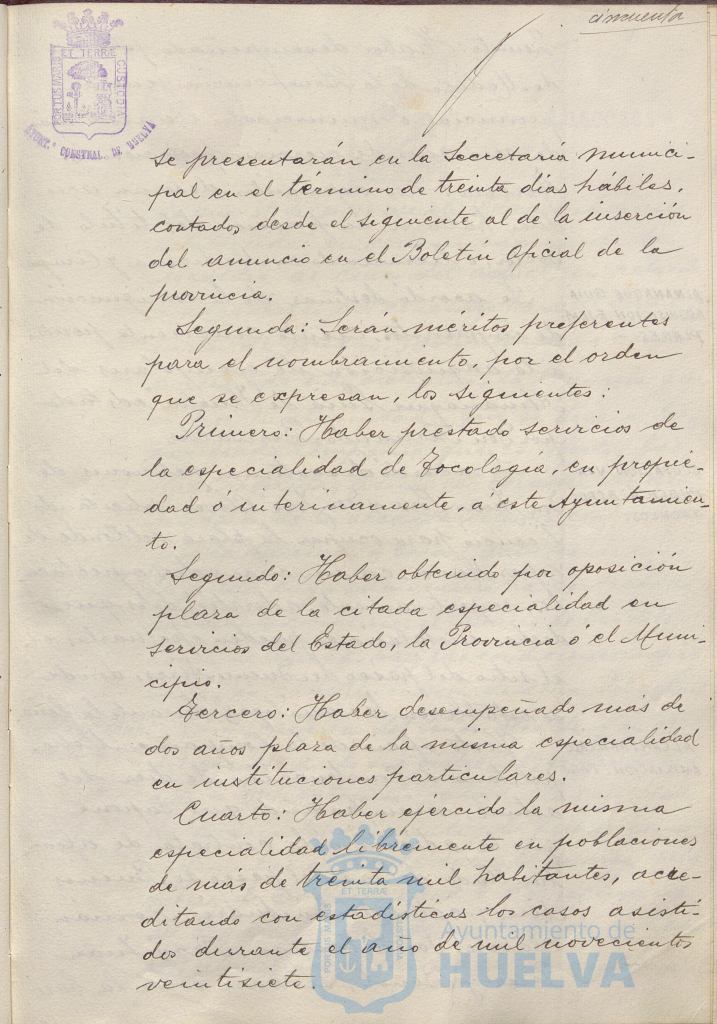 cincuenta
PORTUS MARIS ET TERRÆ CUSTODIA
AYUNT.º CONSTNAL. DE HUELVA
se presentarán en la Secretaría munici-
pal en el término de treinta dias hábiles,
contados desde el siguiente al de la inserción
del anuncio en el Boletín Oficial de la
provincia.
Segunda: Serán méritos preferentes
para el nombramiento, por el orden
que se expresan, los siguientes:
Primero: Haber prestado servicios de
la especialidad de Tocología, en propie-
dad ó interinamente, á este Ayuntamien-
to.
Segundo: Haber obtenido por oposición
plaza de la citada especialidad en
servicios del Estado, la Provincia ó el Muni-
cipio.
Tercero: Haber desempeñado más de
dos años plaza de la misma especialidad
en instituciones particulares.
Cuarto: Haber ejercido la misma
especialidad libremente en poblaciones
de más de treinta mil habitantes, acre-
ditando con estadísticas los casos asisti-
dos durante el año de mil novecientos
veintisiete.
PORTUS MARIS ET TERRÆ CUSTODIA
Ayuntamiento de
HUELVA